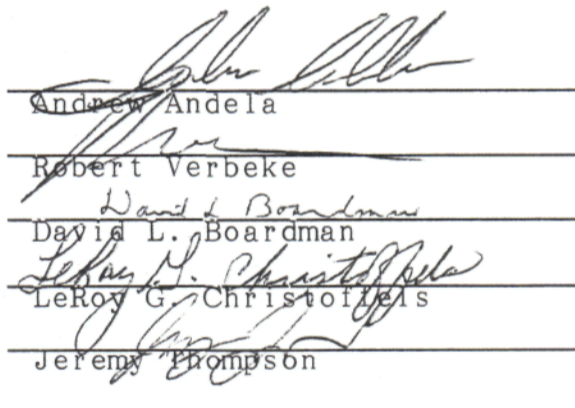 Andrew Andela
Robert Verbeke
David L Boardman
David L. Boardman
LeRoy G. Christoffels
LeRoy G. Christoffels
Jeremy Thompson